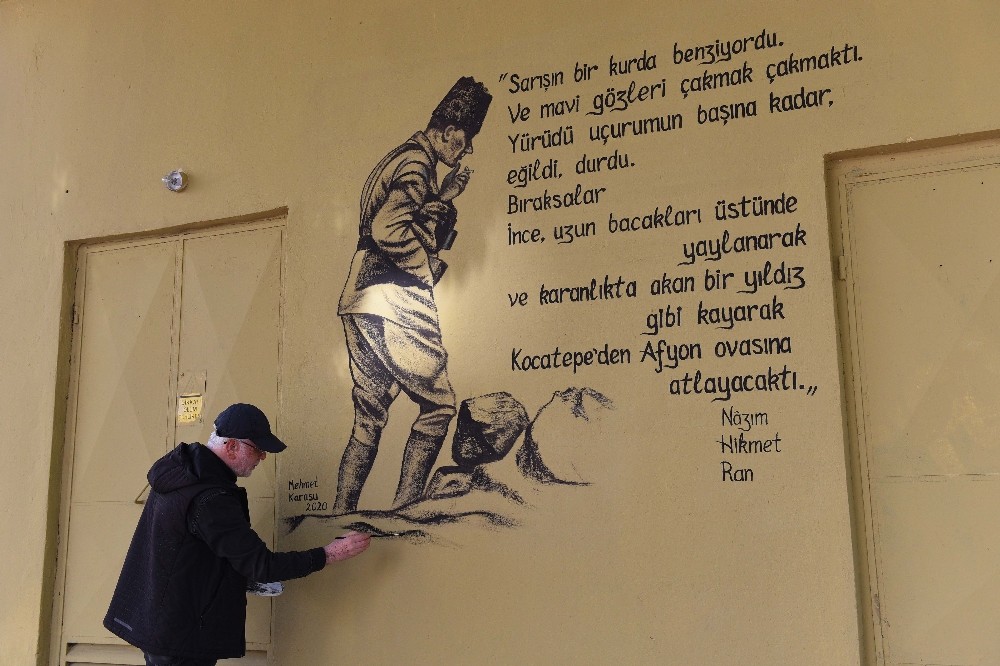 "Sarışın bir kurda benziyordu.
Ve mavi gözleri çakmak çakmaktı.
Yürüdü uçurumun başına kadar,
eğildi, durdu.
Bıraksalar
İnce, uzun bacakları üstünde
yaylanarak
ve karanlıkta akan bir yıldız
gibi kayarak
Kocatepe'den Afyon ovasına
atlayacaktı.„
Nâzım
Hikmet
Ran
Mehmet
Karasu
2020
ÖLÜM